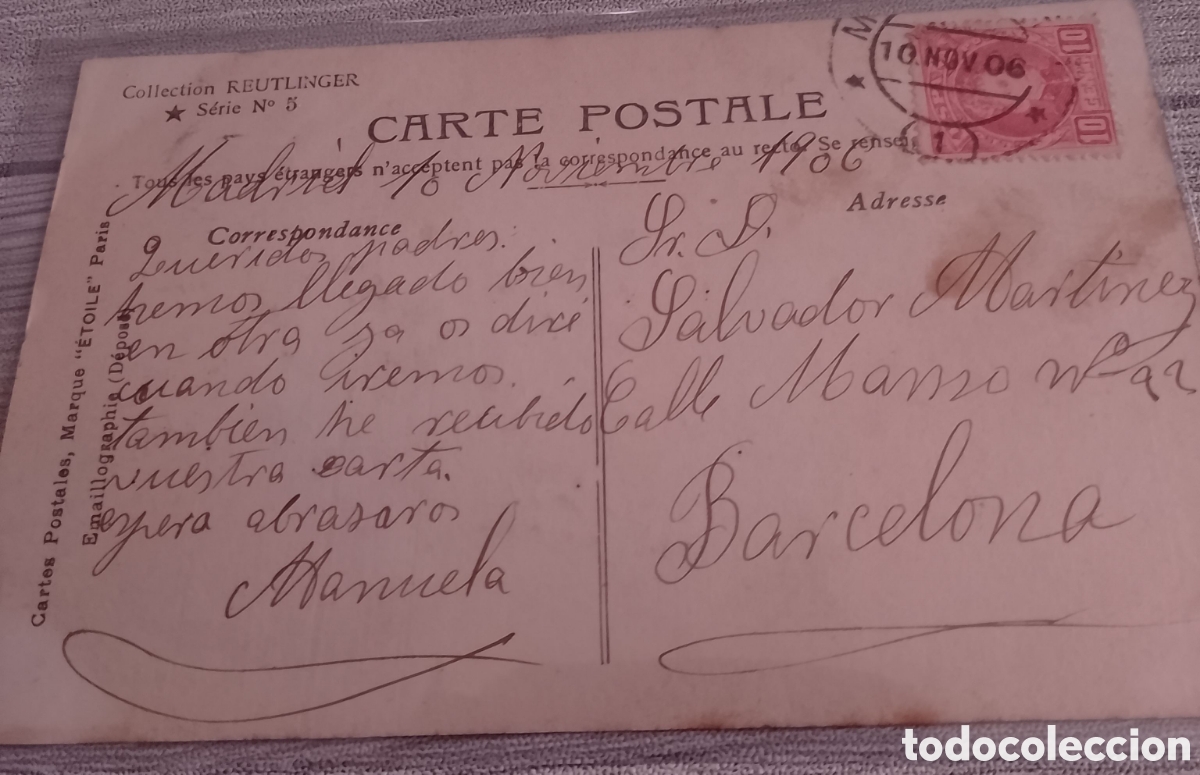 Collection REUTLINGER
★ Série Nº 5
CARTE POSTALE
Tous les pays étrangers n'acceptent pas la correspondance au recto. Se renseig
Madrid 10 Noviembre 1906
Correspondance
Adresse
Queridos padres.
hemos llegado bien
en otra ya os diré
cuando iremos.
tambien he recibido
vuestra carta.
espera abrasaros
Manuela
Sr. D.
Salvador Martinez
Calle Manso nº
Barcelona
Cartes Postales, Marque "ÉTOILE" Paris
Emaillographie (Déposé)
M
10 NOV 06
(1)
10
10
todocoleccion